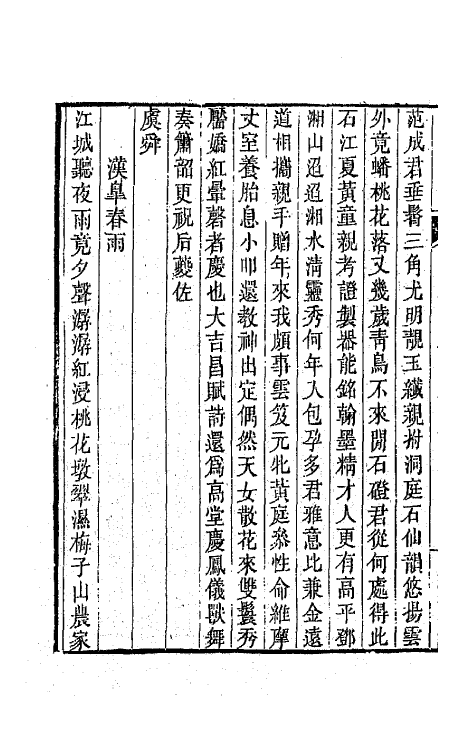 范成君垂髫三角尤明靚玉纖親拊洞庭石仙韻悠揚雲
外竟蟠桃花落又幾歲靑鳥不來閒石磴君從何處得此
石江夏黃童親考證製器能銘翰墨精才人更有高平鄧
湘山迢迢湘水淸靈秀何年入包孕多君雅意比兼金遠
道相攜親手贈年來我頗事雲笈元牝黃庭叅性命維摩
丈室養胎息小叩還教神出定偶然天女散花來雙鬟秀
靨嬌紅暈磬者慶也大吉昌賦詩還爲高堂慶鳳儀獸舞
奏簫韶更祝后夔佐
虞舜
漢臯春雨
江城聽夜雨竟夕聲潺潺紅浸桃花墩翠濕梅子山農家